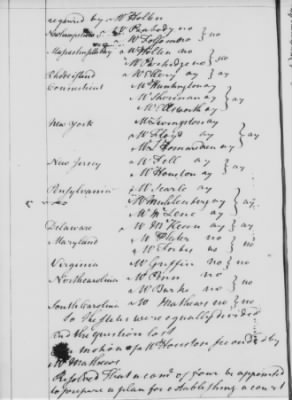 required by Mr Holten
Mr Peabody no } no
Mr Folsom no
Massachusetts Bay Mr Holten no } no
Mr Partridge no
Rhode Island Mr Ellery ay } ay
Connecticut Mr Huntington ay } ay
Mr Sherman ay
Mr Elsworth ay
New York Mr Livingston ay } ay
Mr Floyd ay
Mr L'Hommedieu ay
New Jersey Mr Fell ay } ay
Mr Houston ay
Pensylvania Mr Searle ay } ay
Mr Muhlenberg ay
Mr McLene ay
Delaware Mr McKean ay } ay
Maryland Mr Plater no } no
Mr Forbes no
Virginia Mr Griffin no } no
North Carolina Mr Penn no } no
Mr Burke no
South Carolina Mr Mathews no } no
So the states were equally divided
and the question lost
motion of Mr Houston seconded by
Mr Mathews
Resolved That a com. of four be appointed
to prepare a plan for establishing a court